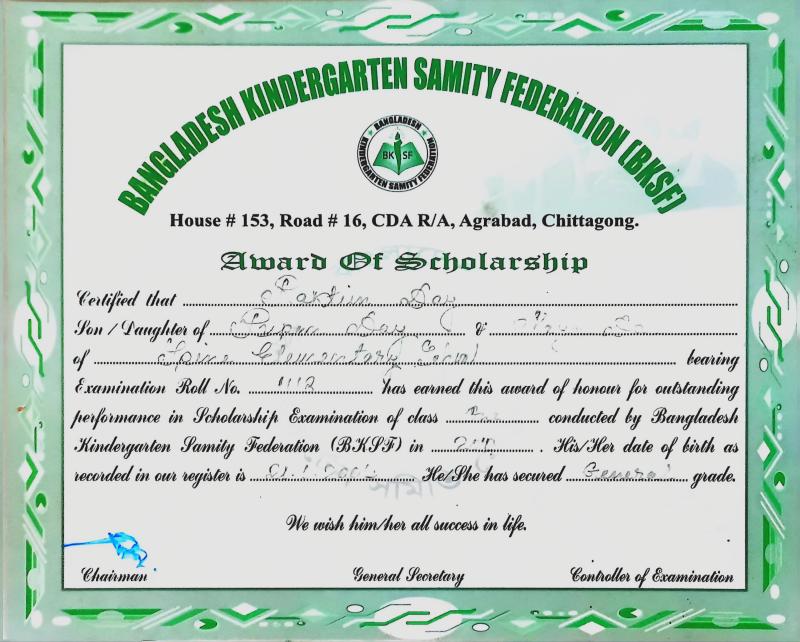 BANGLADESH KINDERGARTEN SAMITY FEDERATION (BKSF)
BANGLADESH
BK SF
KINDERGARTEN SAMITY FEDERATION
House # 153, Road # 16, CDA R/A, Agrabad, Chittagong.
Award Of Scholarship
Certified that
Son / Daughter of &
of Elementary School bearing
Examination Roll No. has earned this award of honour for outstanding
performance in Scholarship Examination of class conducted by Bangladesh
Kindergarten Samity Federation (BKSF) in . His/Her date of birth as
recorded in our register is He/She has secured General grade.
We wish him/her all success in life.
Chairman General Secretary Controller of Examination